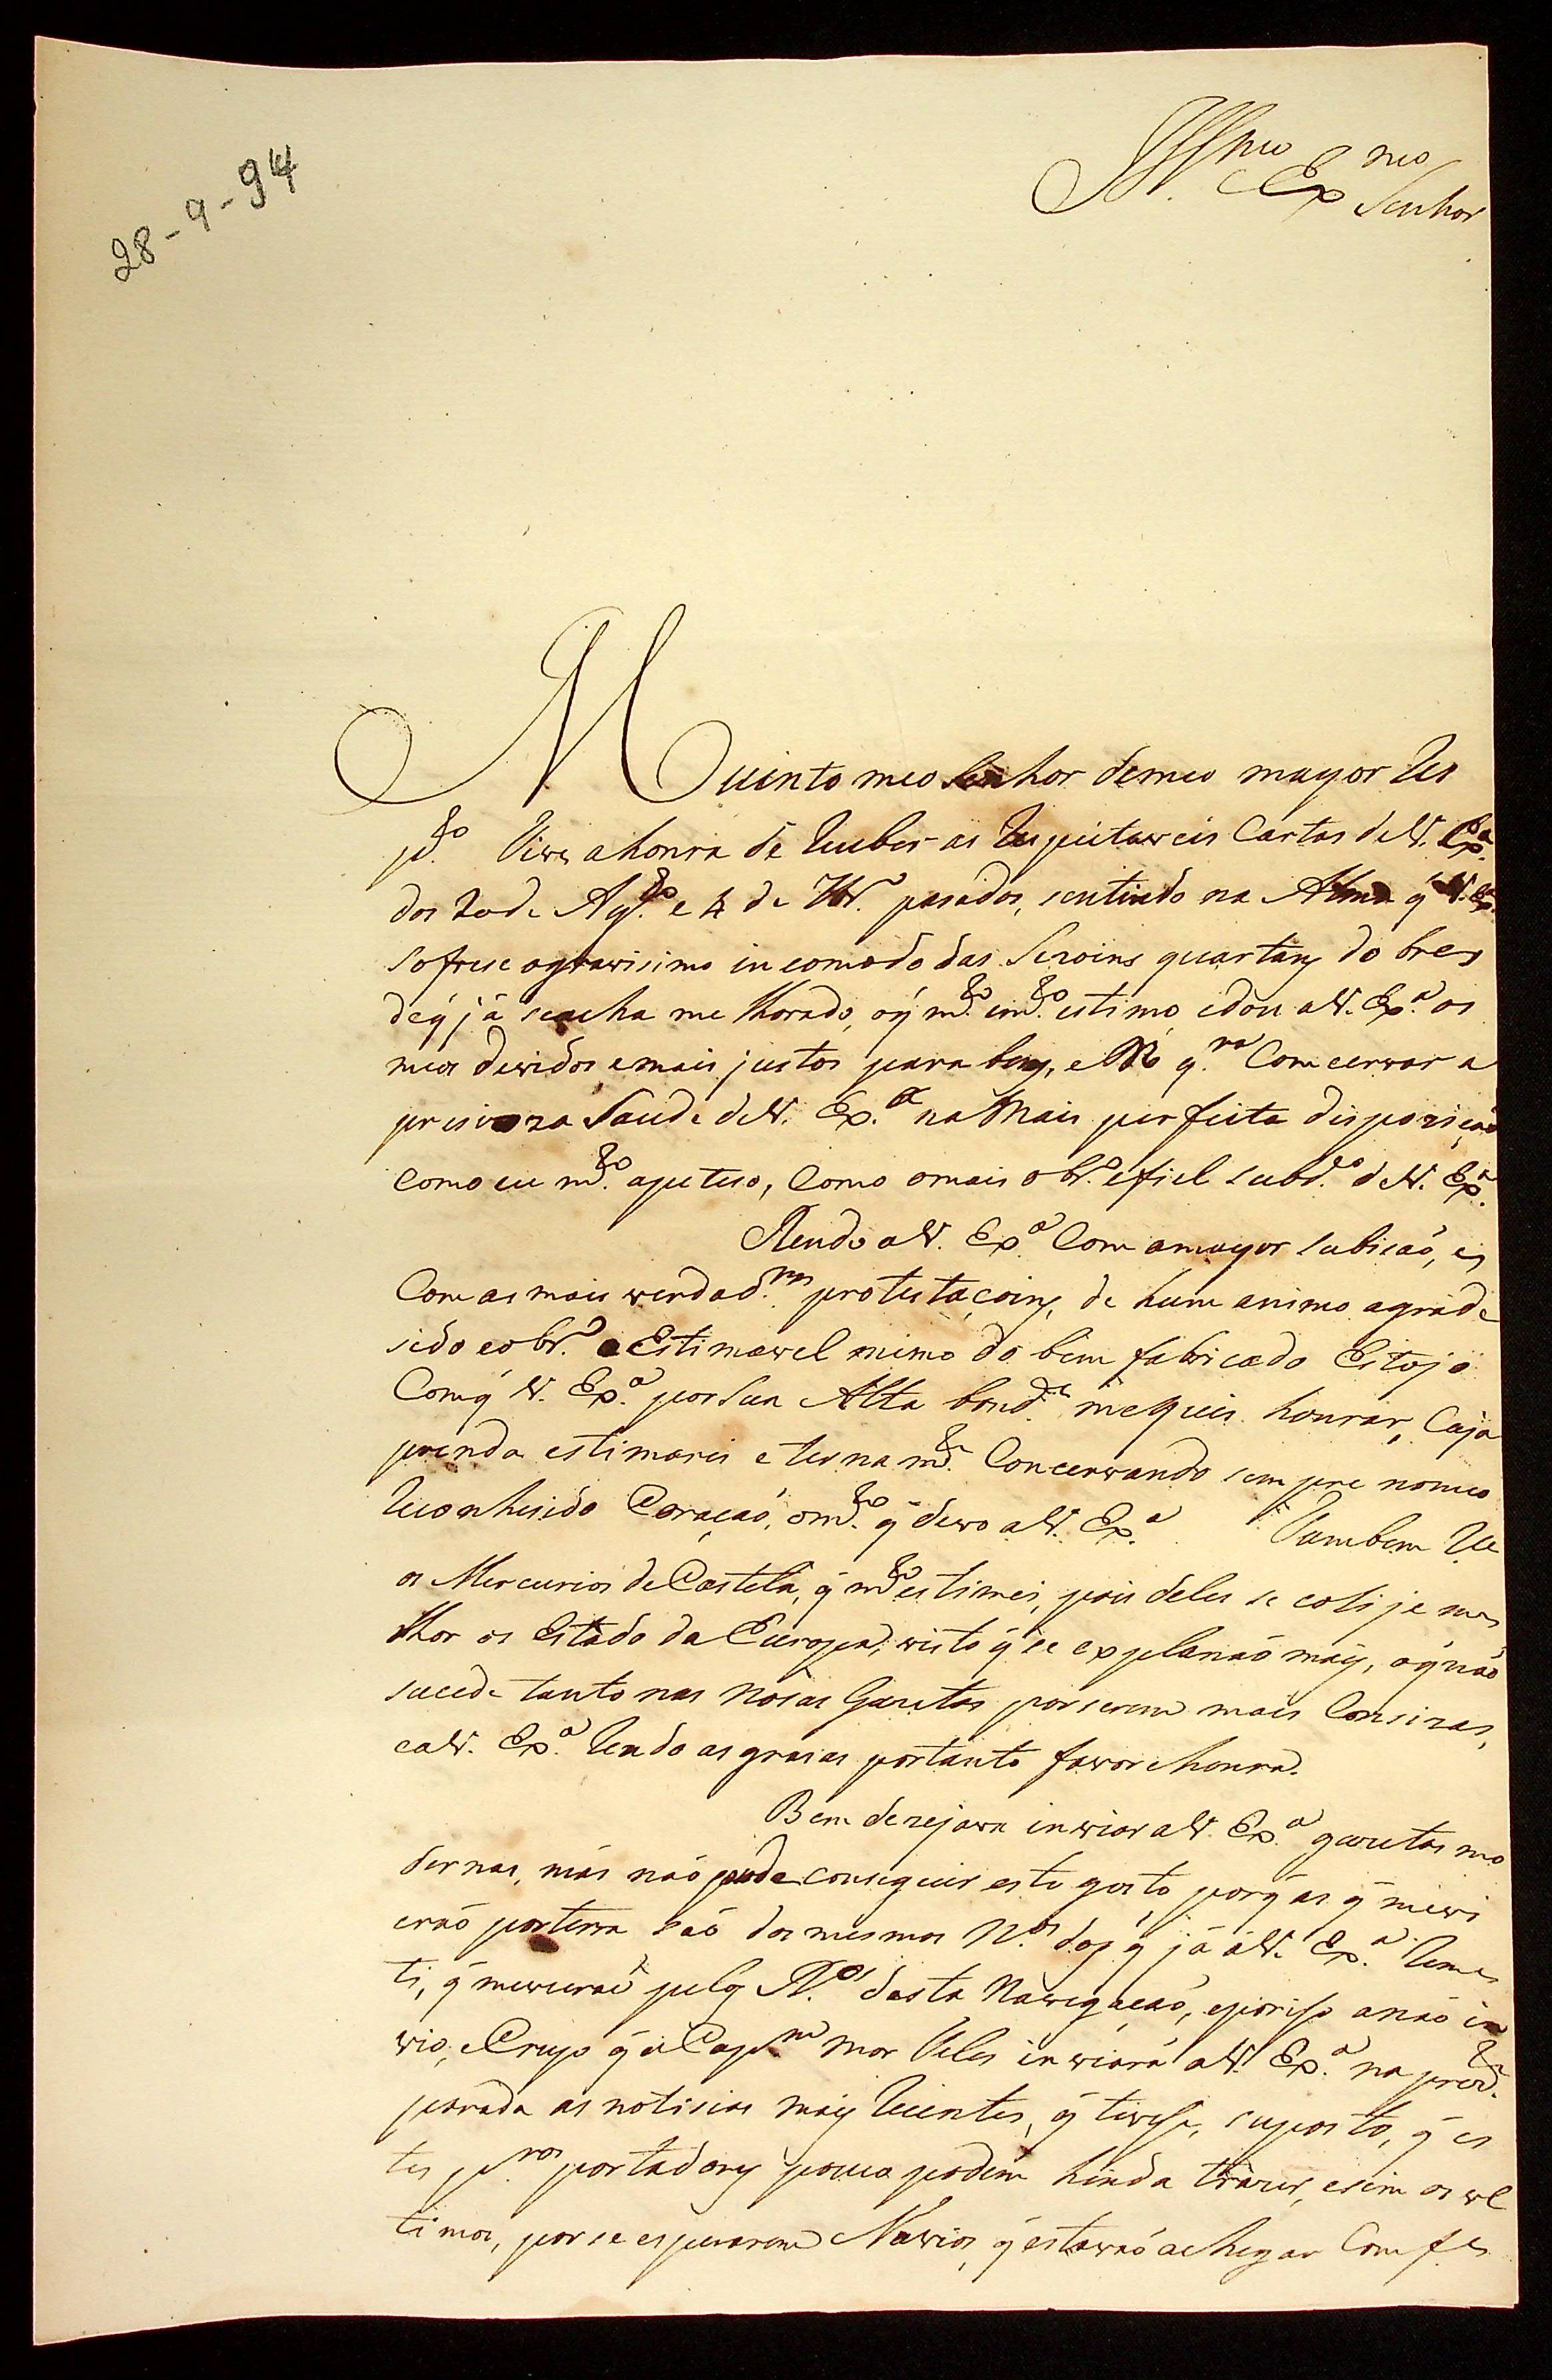 28-9-94
Ill.mo Ex.mo Senhor
Muinto meo Senhor demeo mayor Res
pt.o Tive ahonra de Reseber as Respeitaveis Cartas deV. Ex.a
dos de Ag.to e 4 de pasados, sentindo na Alma q̃ V. Ex.a
sofrese ogravisimo incomodo das Sezoins quartans dobres
deq̃ já seacha melhorado, oq̃ m.to em.to estimo edou aV. Ex.a os
meos devidos emais justos parabens, e q.ra Comcervar a
presioza Saude deV. Ex.a na Mais perfeita dispozicaó
Como eu m.to apeteso, Como omais obr.o efiel subd.o deV. Ex.a
Rendo aV. Ex.a Com amayor subicaó, e
Com as mais verdad.ras protestacoins, de hum animo agrade
sido eobr.o o Estimavel mimo do bem fabricado Estojo
Comq̃ V. Ex.a por sua Alta bond.e mequis honrar, Cuja
prenda estimarei eternam.te Concervando sempre nomeo
Reconhesido Coraçaó, om.to q̃ devo aV. Ex.a Tambem Re
os Mercurios de Castela, q̃ m.to estimei, pois deles se colije me
lhor os Estado da Europa, visto q̃ se explanaó mais, oq̃ naó
sucede tanto nas nosas Gazetas por serem mais Consizas,
eaV. Ex.a Rendo as grasas portanto favor ehonra.
Bem dezejava inviar aV. Ex.a gazetas mo
dernas, más naó pude conseguir este gosto, porq̃ as q̃ mevi
eraó porterra saó dos mesmos N.os dos q̃ já áV. Ex.a Reme
ti, q̃ mevieraó pelos desta Navegaçaó, eporiso as naó in
vio, eCreyo q̃ o Cap.m mor Veles inviará aV. Ex.a na prez.te
parada as notisias mais Resentes, q̃ tivese, suposto, q̃ es
tes pr.os portadores pouco podem hinda trazer, esim os ul
timos, por se esperarem Navios, q̃ estavaó achegar Com fes